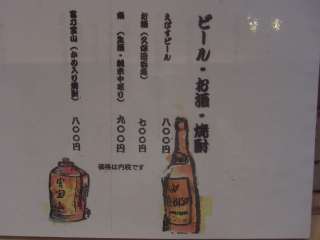 ビール・お酒・焼酎
えびすビール 八〇〇円
お酒（久保田千寿） 七〇〇円
九〇〇円
富乃宝山（かめ入り焼酎） 八〇〇円
価格は内税です